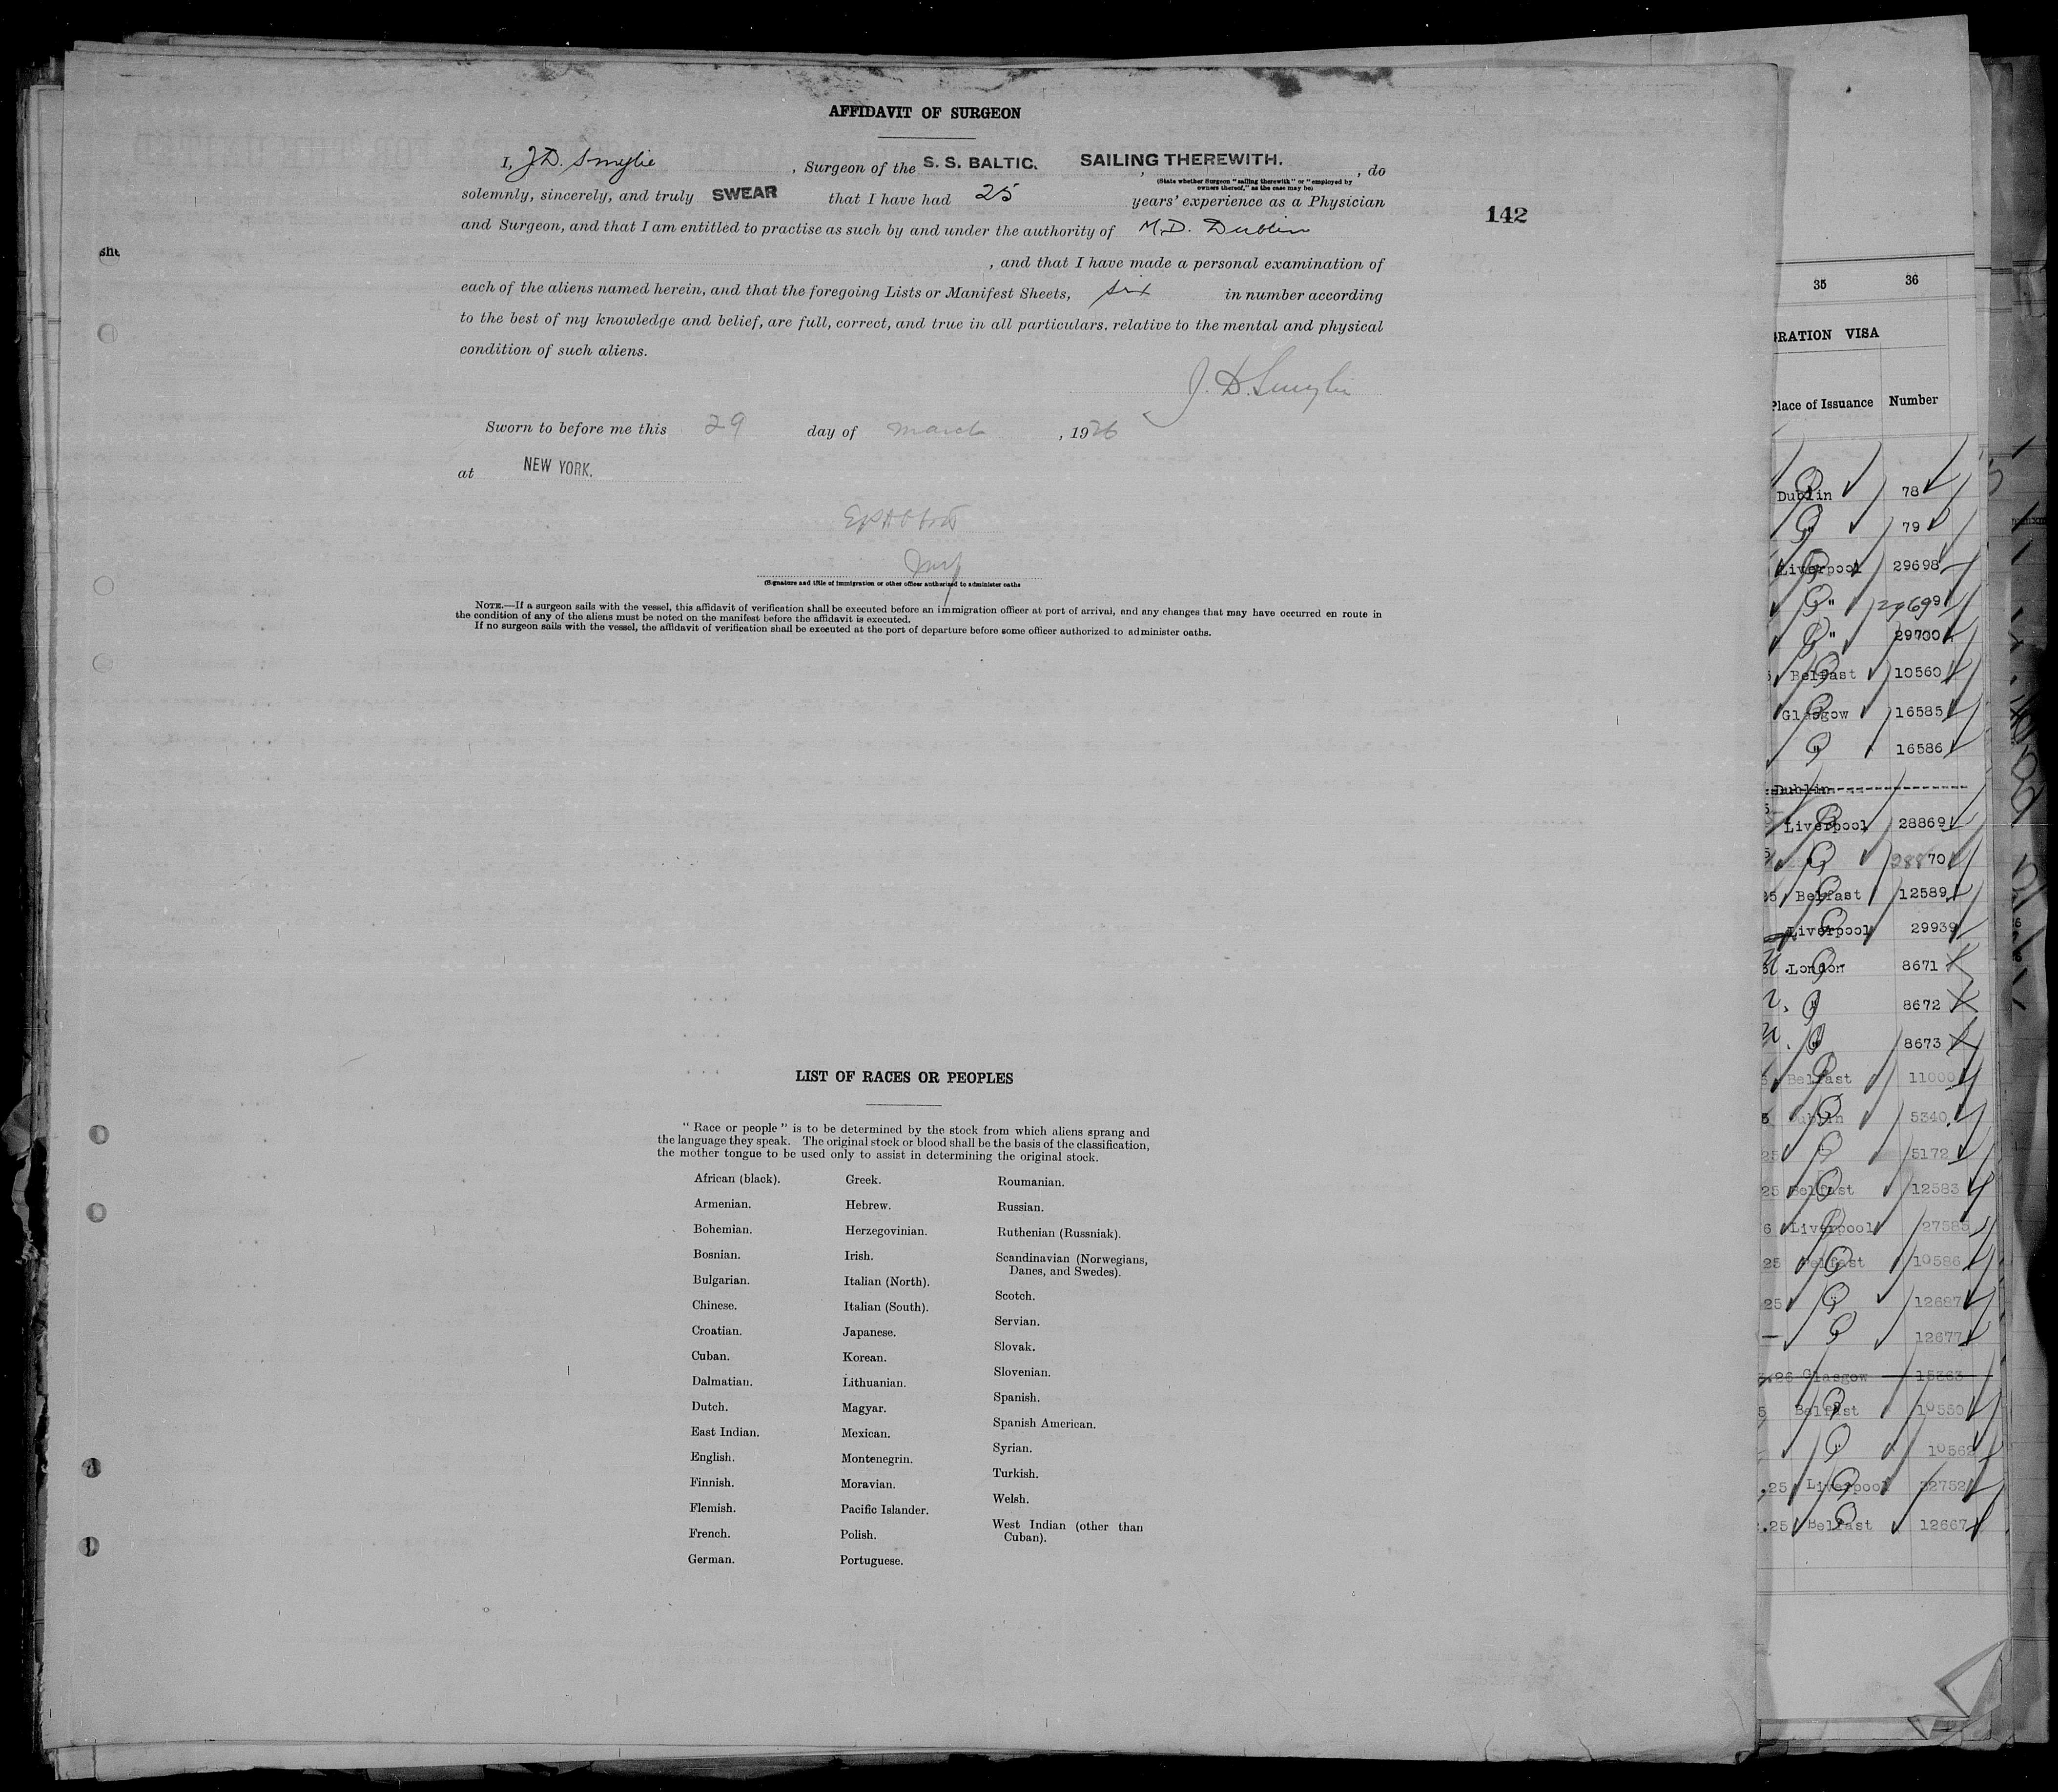 AFFIDAVIT OF SURGEON
I, J.D. Smylie , Surgeon of the S. S. BALTIC. SAILING THEREWITH. , do
(State whether Surgeon "sailing therewith" or "employed by
owners thereof," as the case may be)
solemnly, sincerely, and truly SWEAR that I have had 25 years' experience as a Physician
142
and Surgeon, and that I am entitled to practise as such by and under the authority of M.D. Dublin
, and that I have made a personal examination of
each of the aliens named herein, and that the foregoing Lists or Manifest Sheets, six in number according
to the best of my knowledge and belief, are full, correct, and true in all particulars, relative to the mental and physical
condition of such aliens.
J. D. Smylie
Sworn to before me this 29 day of March , 1926
at NEW YORK.
(Signature and title of immigration or other officer authorized to administer oaths
NOTE.—If a surgeon sails with the vessel, this affidavit of verification shall be executed before an immigration officer at port of arrival, and any changes that may have occurred en route in
the condition of any of the aliens must be noted on the manifest before the affidavit is executed.
If no surgeon sails with the vessel, the affidavit of verification shall be executed at the port of departure before some officer authorized to administer oaths.
LIST OF RACES OR PEOPLES
"Race or people" is to be determined by the stock from which aliens sprang and
the language they speak. The original stock or blood shall be the basis of the classification,
the mother tongue to be used only to assist in determining the original stock.
African (black).
Armenian.
Bohemian.
Bosnian.
Bulgarian.
Chinese.
Croatian.
Cuban.
Dalmatian.
Dutch.
East Indian.
English.
Finnish.
Flemish.
French.
German.
Greek.
Hebrew.
Herzegovinian.
Irish.
Italian (North).
Italian (South).
Japanese.
Korean.
Lithuanian.
Magyar.
Mexican.
Montenegrin.
Moravian.
Pacific Islander.
Polish.
Portuguese.
Roumanian.
Russian.
Ruthenian (Russniak).
Scandinavian (Norwegians,
Danes, and Swedes).
Scotch.
Servian.
Slovak.
Slovenian.
Spanish.
Spanish American.
Syrian.
Turkish.
Welsh.
West Indian (other than
Cuban).
35 36
GRATION VISA
Place of Issuance Number
Dublin 78
" 79
Liverpool 29698
" 29699
" 29700
Belfast 10560
Glasgow 16585
" 16586
Dublin
Liverpool 28869
" 28870
Belfast 12589
Liverpool 29939
London 8671
" 8672
" 8673
Belfast 11000
Dublin 5340
25 5172
25 Belfast 12583
6 Liverpool 27585
25 Belfast 10586
25 12687
12677
26 Glasgow 15363
5 Belfast 10550
10562
.25 Liverpool 32752
.25 Belfast 12667